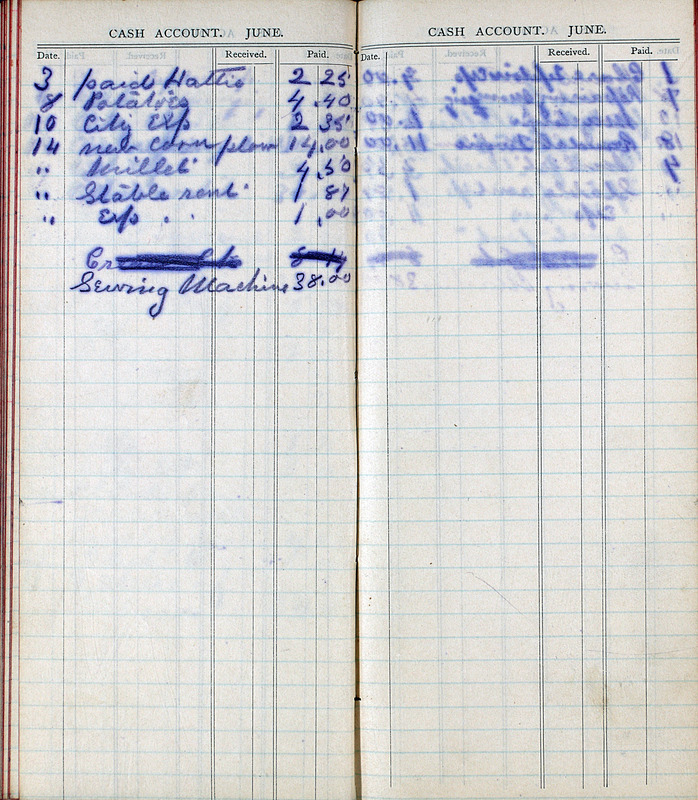 CASH ACCOUNT. JUNE.
Date. Received. Paid.
3 paid Hattie 2 25
8 Potatoes 4.40
10 City Exp 2 35
14 new corn plow 14.00
" Millet 4.50
" Stable rent 1 87
" Exp 1.00
Cr
Sewing Machine 38.00
CASH ACCOUNT. JUNE.
Date. Received. Paid.